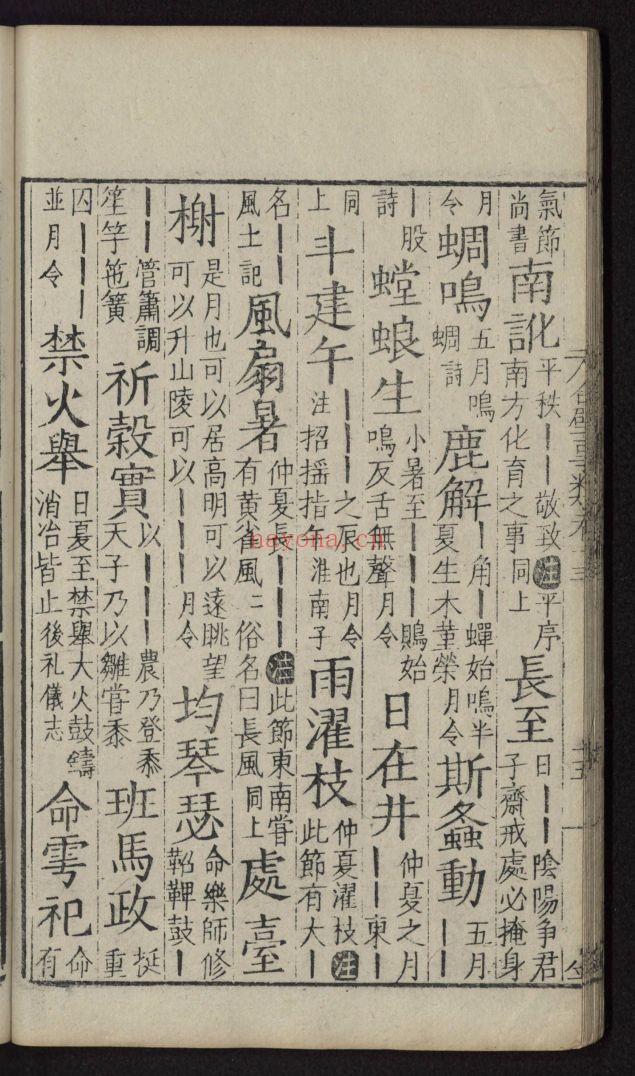 氣節尚書南訛平秩丨丨敬致注平序南方化育之事同上長至日丨丨陰陽争君子齋戒處必掩身
月令蜩鳴五月鳴蜩詩鹿解丨角丨蟬始鳴半夏生木菫榮月令斯螽動五月丨丨
丨股詩螳蜋生小暑至丨丨丨鵙始鳴反舌無聲月令日在井仲夏之月丨丨東丨
同上斗建午丨丨丨之辰也月令注招摇指午淮南子雨濯枝仲夏濯枝注此節有大丨
名丨丨風土記風扇暑仲夏長丨丨丨注此節東南嘗有黄雀風二俗名曰長風同上處臺
榭是月也可以居高明可以遠眺望可以升山陵可以丨丨月令均琴瑟命樂師修鞀鞞鼓丨
丨丨管簫調笙竽箎簧祈穀實以丨丨丨農乃登黍天子乃以雛嘗黍班馬政挺重
囚丨丨丨並月令禁火舉日夏至禁舉大火鼓鑄消冶皆止後礼儀志命雩祀命有
hayona.cn